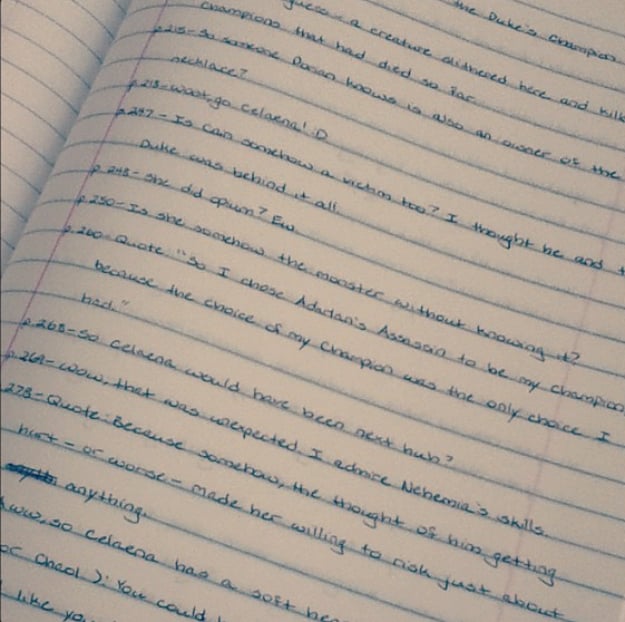 the Duke's champion
guess - a creature slithered here and kill
champions that had died so far.
p.215-So someone Dorian knows is also an owner of the
necklace?
p.218-woot, go Celaena! :D
p.237-Is Cain somehow a victim too? I thought he and t
Duke was behind it all.
p.248-She did opium? Ew.
p.250-Is she somehow the monster without knowing it?
p.260-Quote "So I chose Adarlan's Assassin to be my champion
because the choice of my champion was the only choice I
had."
p.268-So Celaena would have been next huh?
p.269-Wow, that was unexpected. I admire Nehemia's skills.
278-Quote: Because somehow, the thought of him getting
hurt - or worse - made her willing to risk just about
anything.
Aww, so Celaena has a soft hea
or Chaol ): You could
like yo